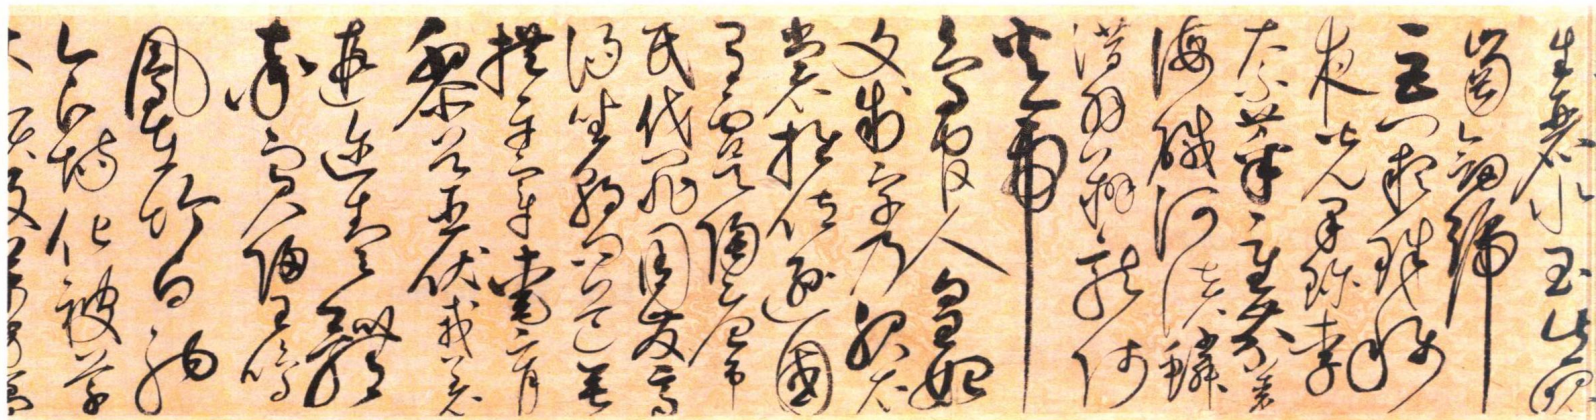 生麗水玉出崑
崗劍號
巨闕珠稱
夜光果珍李
柰菜重芥薑
海鹹河淡鱗
潛羽翔龍師
火帝
鳥官人皇始
文制字乃服衣
裳推位遜國
有虞陶唐弔
民伐罪周發商
湯坐朝問道垂
拱平章愛育
黎首臣伏戎羌
遐邇壹體
率賓歸王鳴
鳳在竹白駒
食場化被草